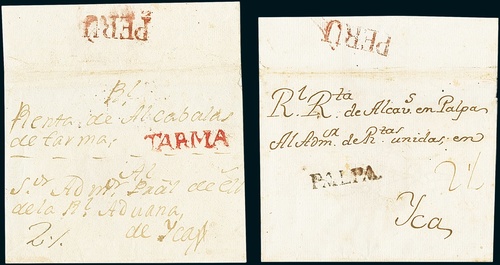 PERÚ
Rl
Renta de Alcabalas
de tarma,
TARMA
Al
Sor Admor Pral de
de la Rl Aduana,
2 1/.
de Yca
PERÚ
Rl Rta de Alcavs en Palpa
Al Admor de Rtas unidas en
PALPA.
2 1/.
Yca